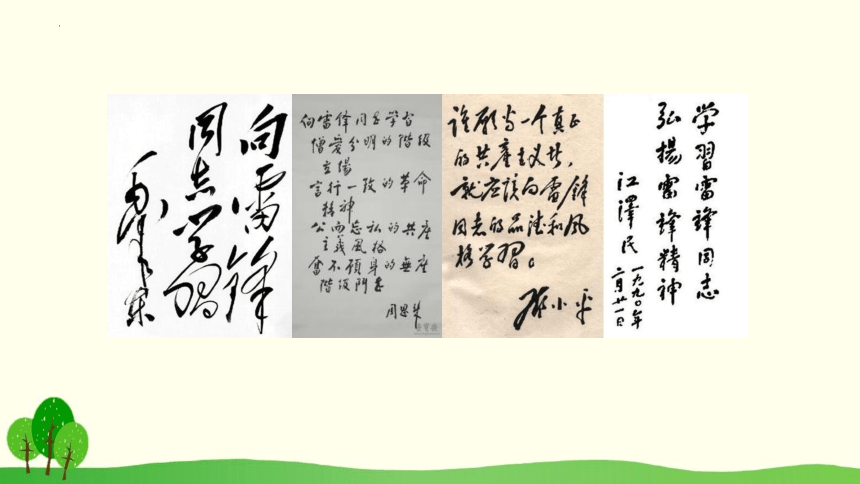 向雷锋
同志学習
毛泽东
向雷锋同志学習
憎愛分明的階级
立場
言行一致的革命
精神
公而忘私的共产
主義風格
奮不顧身的無产
階级鬥志
周恩来
谁願当一个真正
的共產主义者，
就应该向雷锋
同志的品德和风
格学習。
邓小平
学習雷鋒同志
弘揚雷鋒精神
江澤民
一九九〇年
二月廿一日